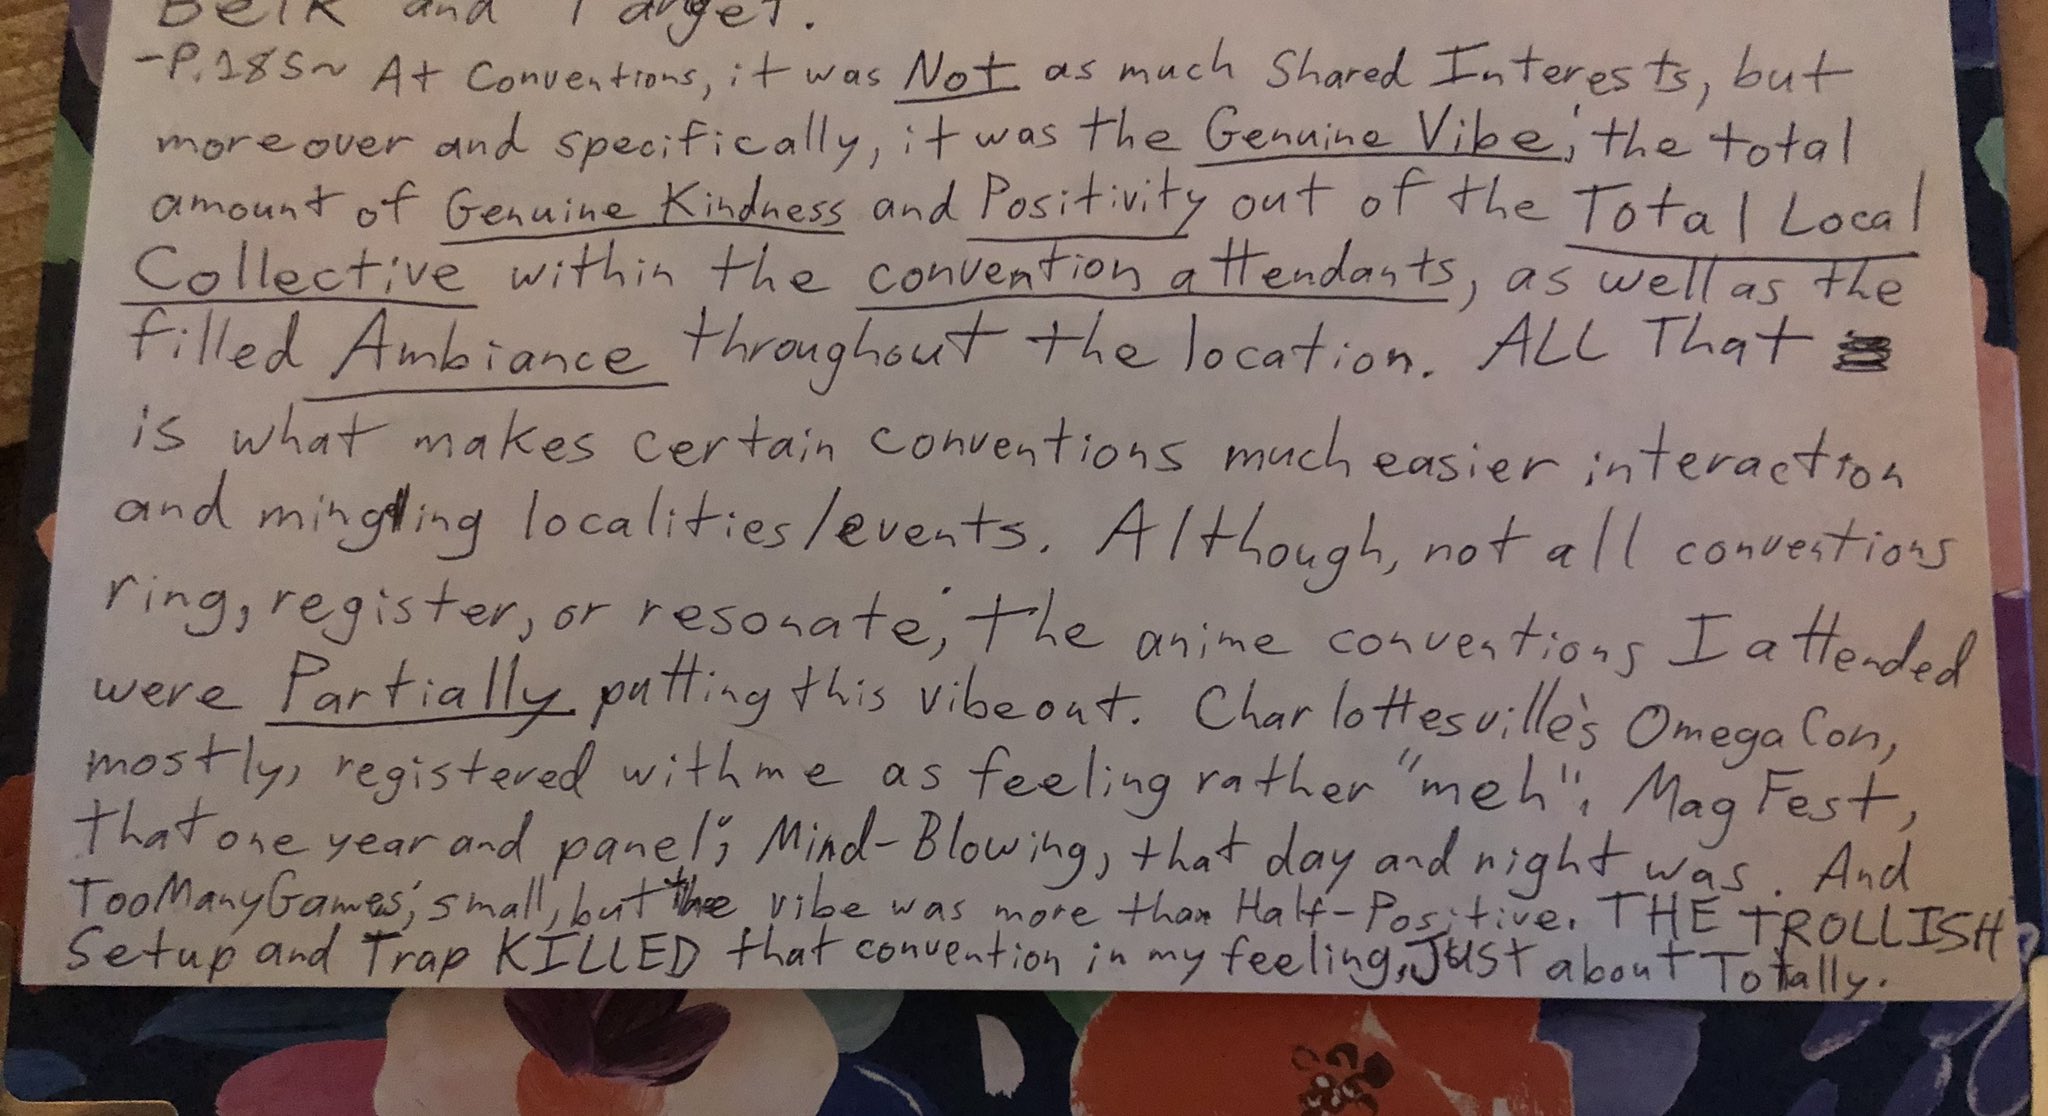 Belk and Target.
-P.185~ At Conventions, it was Not as much Shared Interests, but
moreover and specifically, it was the Genuine Vibe; the total
amount of Genuine Kindness and Positivity out of the Total Local
Collective within the convention attendants, as well as the
filled Ambiance throughout the location. ALL That
is what makes certain conventions much easier interaction
and mingling localities/events. Although, not all conventions
ring, register, or resonate; the anime conventions I attended
were Partially putting this vibe out. Charlottesville's OmegaCon,
mostly, registered with me as feeling rather "meh". MagFest,
that one year and panel; Mind-Blowing, that day and night was. And
TooManyGames; small, but the vibe was more than Half-Positive. THE TROLLISH
Setup and Trap KILLED that convention in my feeling, JUST about Totally.